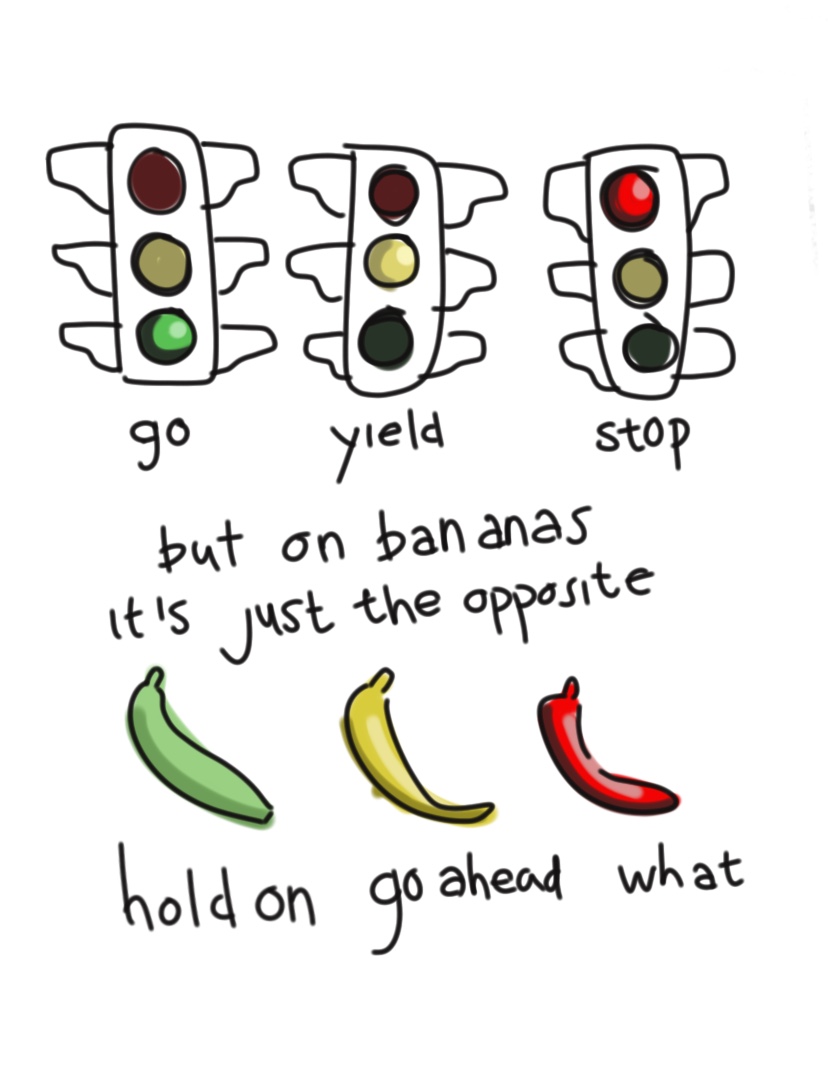 go yield stop
but on bananas
it's just the opposite
hold on go ahead what